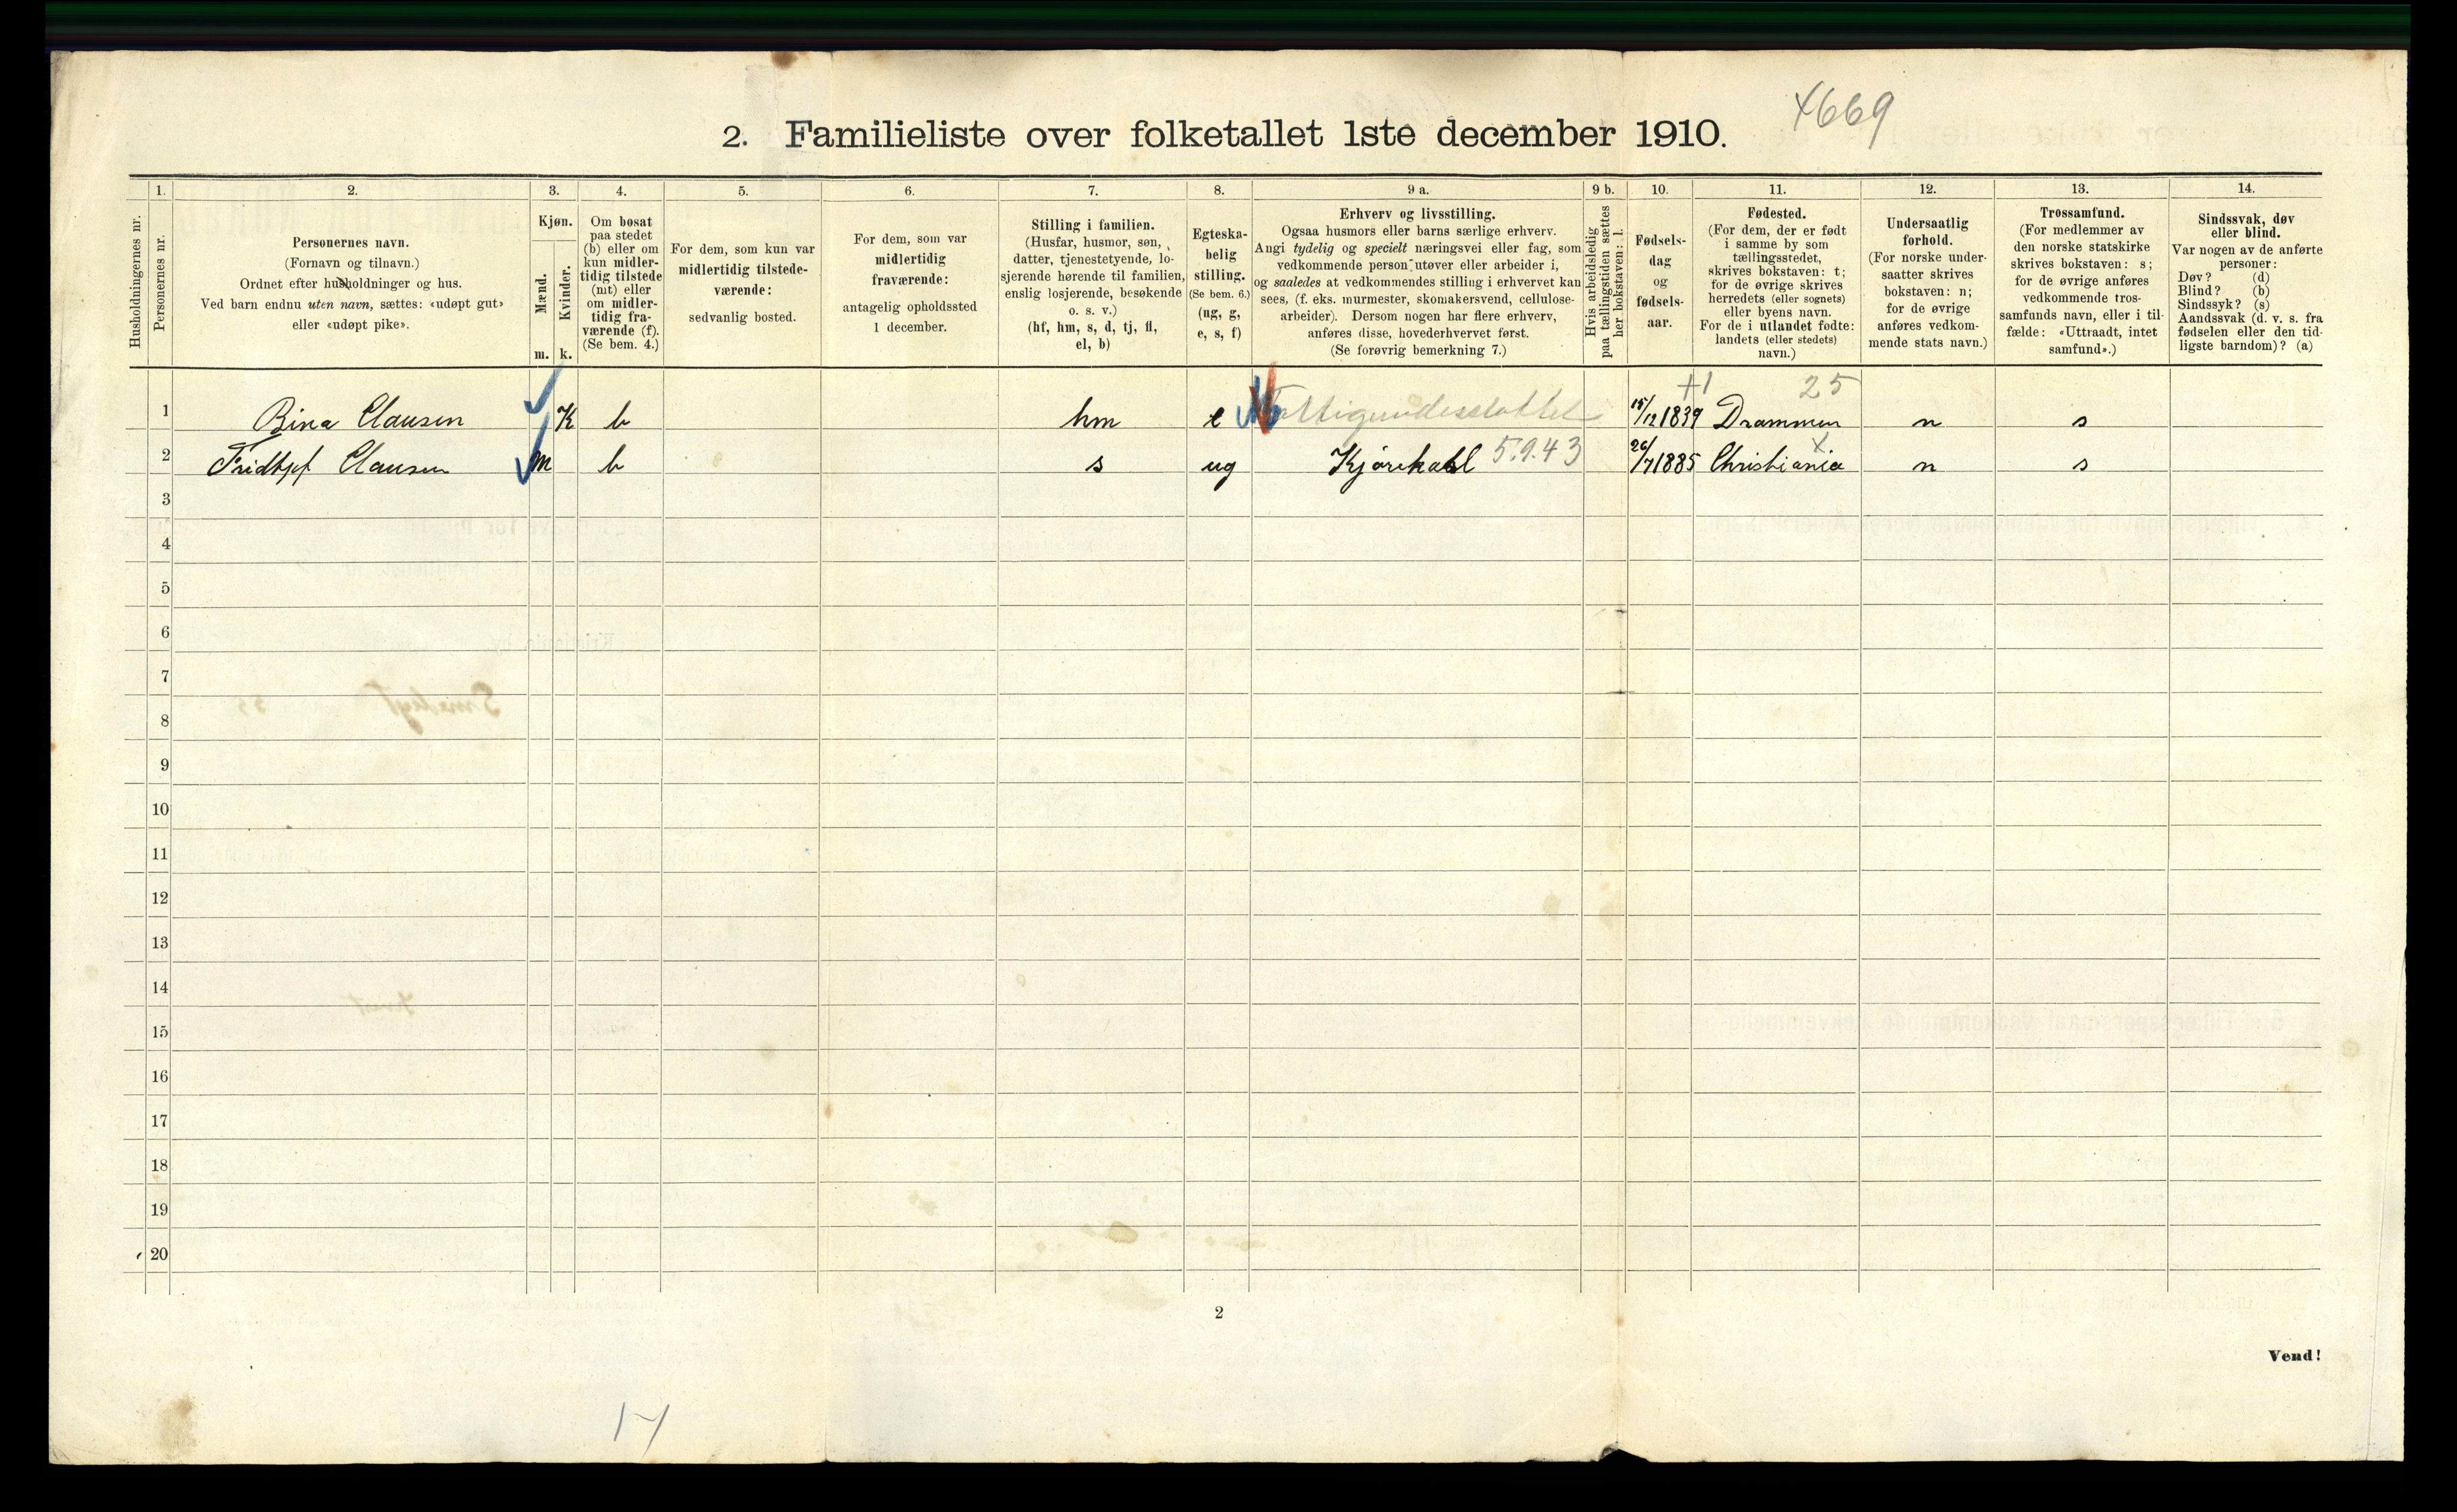 4669
2. Familieliste over folketallet 1ste december 1910.
1. 2. 3. 4. 5. 6. 7. 8. 9 a. 9 b. 10. 11. 12. 13. 14.
Husholdningernes nr.
Personernes nr.
Personernes navn.
(Fornavn og tilnavn.)
Ordnet efter husholdninger og hus.
Ved barn endnu uten navn, sættes: «udøpt gut»
eller «udøpt pike».
Kjøn.
Mænd.
Kvinder.
m. k.
Om bosat
paa stedet
(b) eller om
kun midler-
tidig tilstede
(mt) eller
om midler-
tidig fra-
værende (f).
(Se bem. 4.)
For dem, som kun var
midlertidig tilstede-
værende:
sedvanlig bosted.
For dem, som var
midlertidig
fraværende:
antagelig opholdssted
1 december.
Stilling i familien.
(Husfar, husmor, søn,
datter, tjenestetyende, lo-
sjerende hørende til familien,
enslig losjerende, besøkende
o. s. v.)
(hf, hm, s, d, tj, fl,
el, b)
Egteska-
belig
stilling.
(Se bem. 6.)
(ug, g,
e, s, f)
Erhverv og livsstilling.
Ogsaa husmors eller barns særlige erhverv.
Angi tydelig og specielt næringsvei eller fag, som
vedkommende person utøver eller arbeider i,
og saaledes at vedkommendes stilling i erhvervet kan
sees, (f. eks. murmester, skomakersvend, cellulose-
arbeider). Dersom nogen har flere erhverv,
anføres disse, hovederhvervet først.
(Se forøvrig bemerkning 7.)
Hvis arbeidsledig
paa tællingstiden sættes
her bokstaven: l.
Fødsels-
dag
og
fødsels-
aar.
Fødested.
(For dem, der er født
i samme by som
tællingsstedet,
skrives bokstaven: t;
for de øvrige skrives
herredets (eller sognets)
eller byens navn.
For de i utlandet fødte:
landets (eller stedets)
navn.)
Undersaatlig
forhold.
(For norske under-
saatter skrives
bokstaven: n;
for de øvrige
anføres vedkom-
mende stats navn.)
Trossamfund.
(For medlemmer av
den norske statskirke
skrives bokstaven: s;
for de øvrige anføres
vedkommende tros-
samfunds navn, eller i til-
fælde: «Uttraadt, intet
samfund».)
Sindssvak, døv
eller blind.
Var nogen av de anførte
personer:
Døv? (d)
Blind? (b)
Sindssyk? (s)
Aandssvak (d. v. s. fra
fødselen eller den tid-
ligste barndom)? (a)
+1 25
1 Bina Clausen K b hm e Fattigunderstøttet 15/12 1839 Drammen n s
2 Fridtjof Clausen m b s ug Kjørekarl 5.9.43 26/7 1885 Christiania x n s
3
4
5
6
7
8
9
10
11
12
13
14
15
16
17
18
19
20
2
Vend!
17